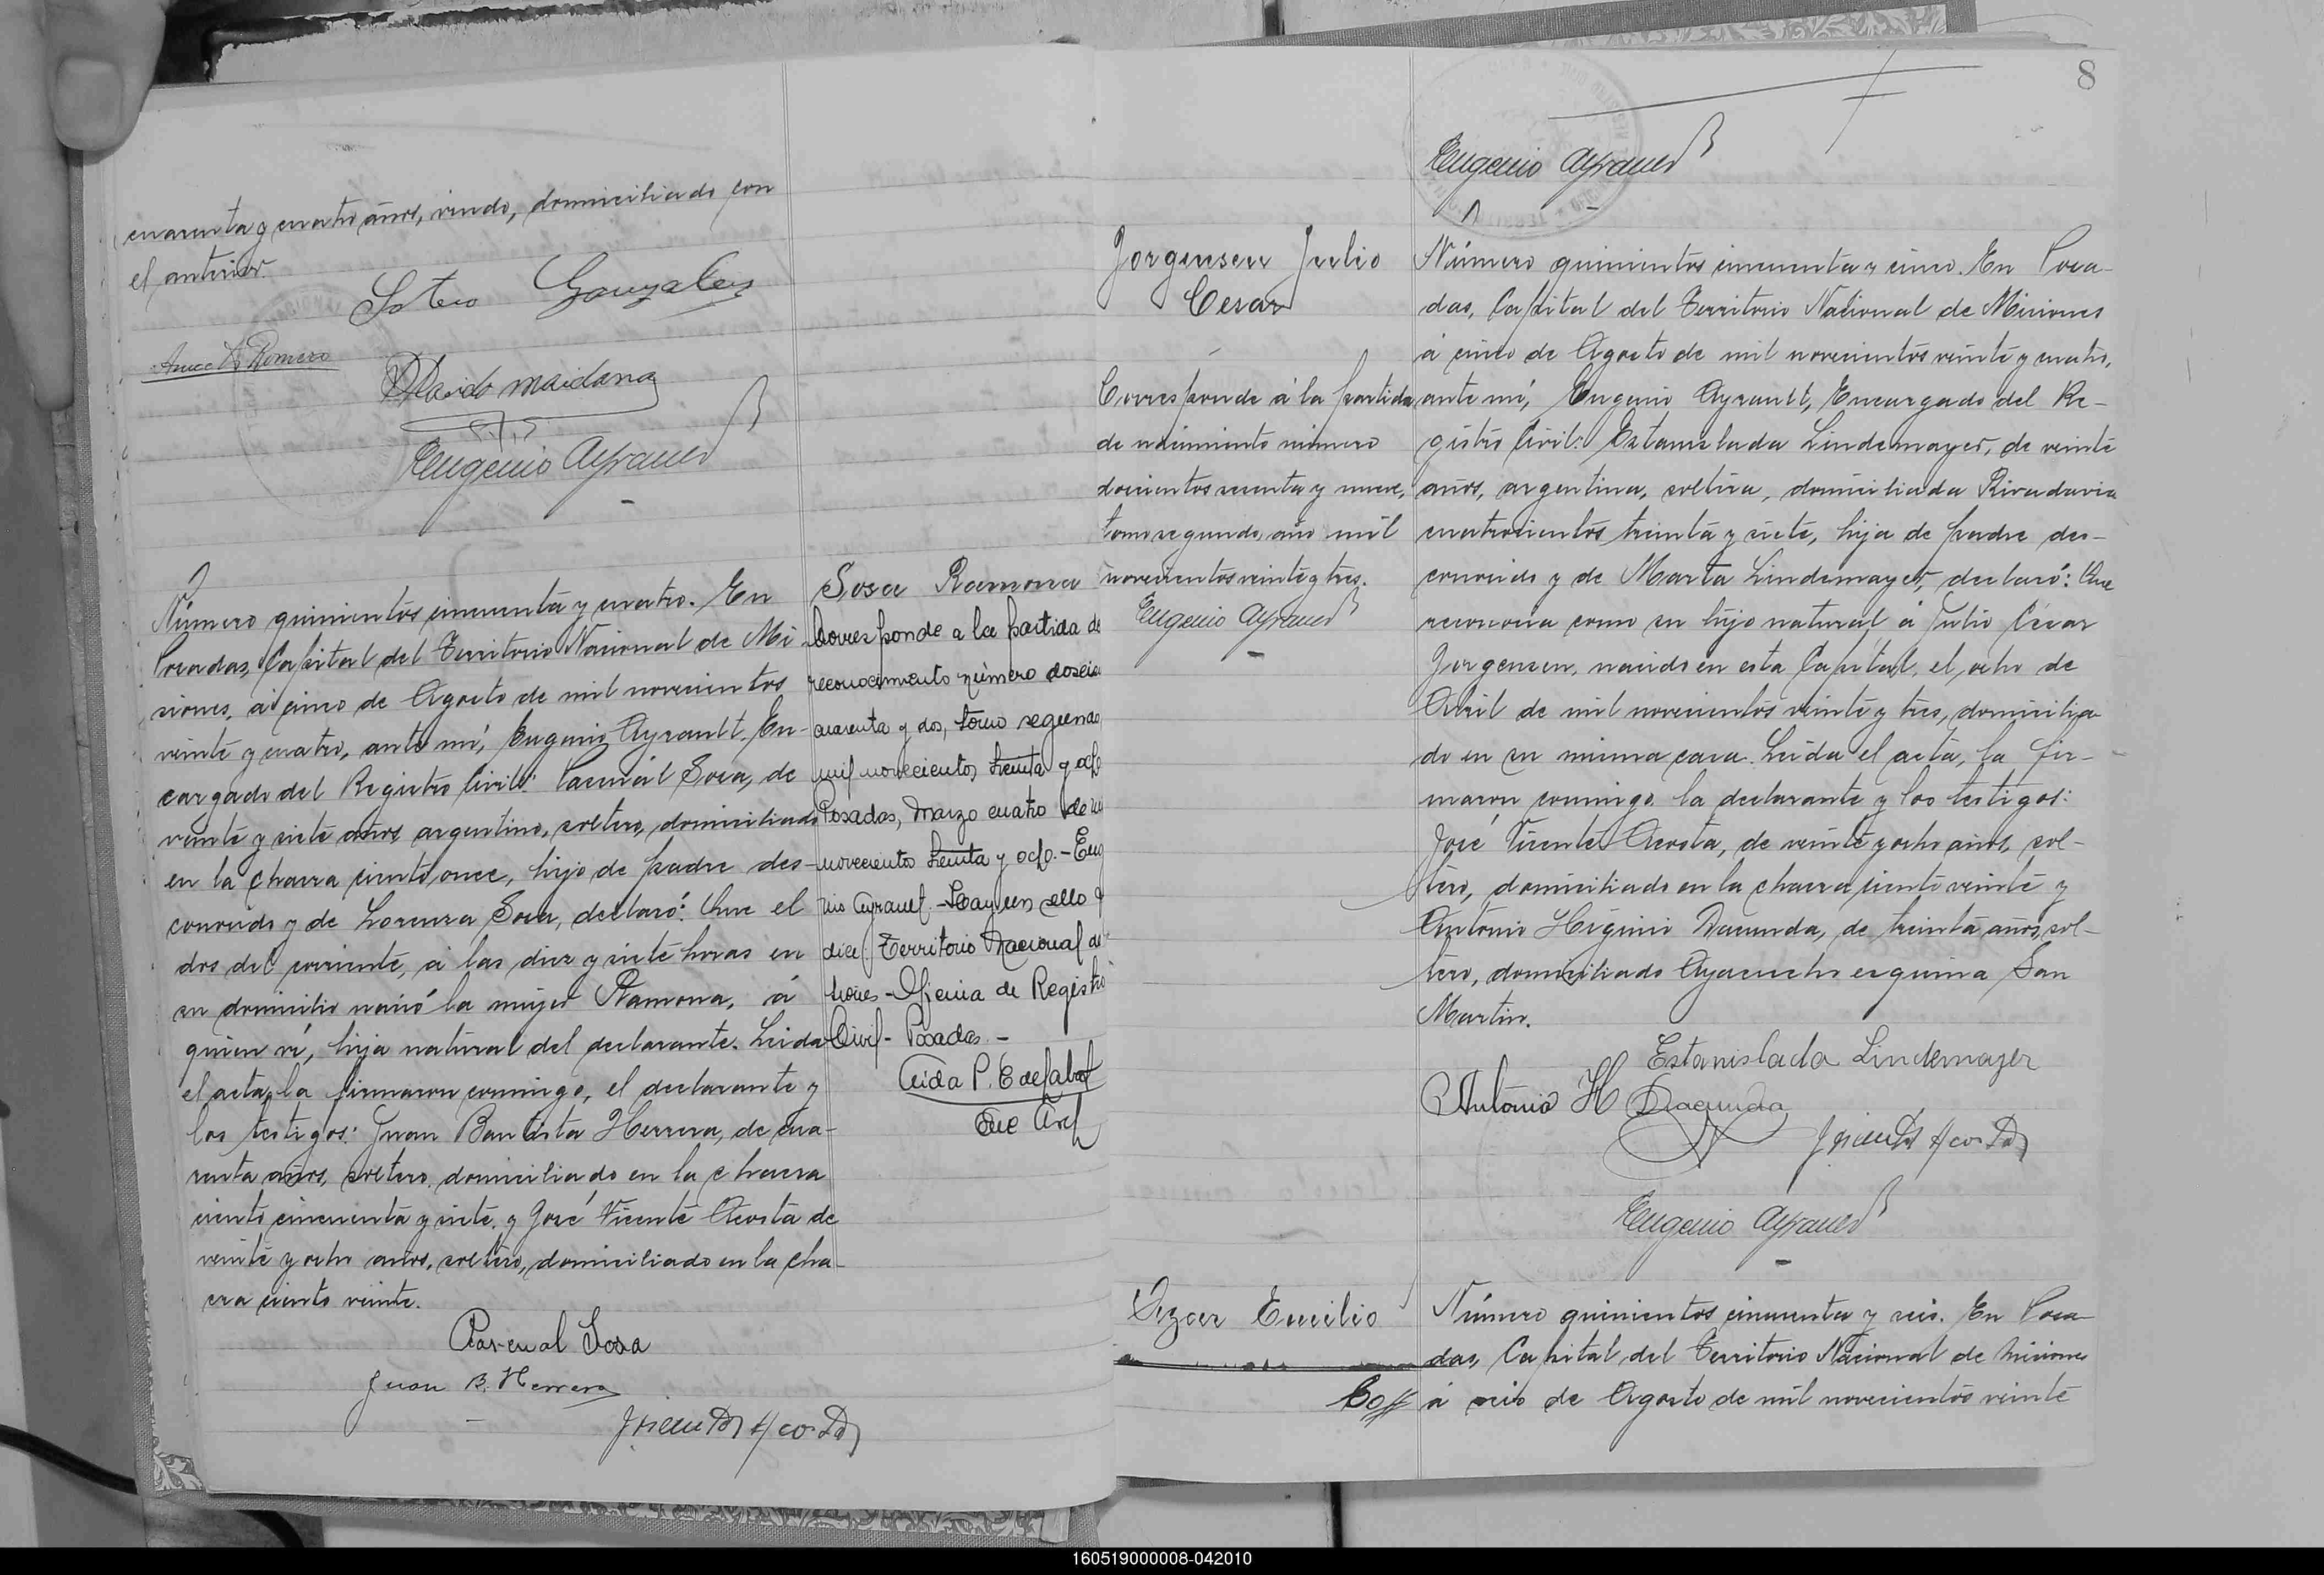 cuarenta y cuatro años, viudo, domiciliado con
el anterior.
Sotero Gonzalez
Romero
Plácido Maidana
Eugenio Ayrault
Número quinientos cincuenta y cuatro. En
Posadas, Capital del Territorio Nacional de Mi-
siones, á cinco de Agosto de mil novecientos
veinte y cuatro, ante mí, Eugenio Ayrault, En-
cargado del Registro Civil: Pascual Sosa, de
veinte y siete años, argentino, soltero, domiciliado
en la chacra ciento once, hijo de padre des-
conocido y de Lorenza Sosa, declaró: Que el
dos del corriente, á las diez y siete horas en
su domicilio nació la mujer Ramona, á
quien ví, hija natural del declarante. Leida
el acta, la firmaron conmigo, el declarante y
los testigos: Juan Bautista Herrera, de cua-
renta años, soltero, domiciliado en la chacra
ciento cincuenta y siete, y José Vicente Acosta de
veinte y ocho años, soltero, domiciliado en la cha-
cra ciento veinte.
Pascual Sosa
Juan B. Herrera
J Vicente Acosta
Sosa Ramona
Corresponde a la partida de
reconocimiento número doscie
cuarenta y dos, tomo segundo
mil novecientos treinta y ocho
Posadas, Marzo cuatro de mil
novecientos treinta y ocho. - Euge
nio Ayrault. - Hay un sello q
dice: Territorio Nacional de
siones - Oficina de Registro
Civil - Posadas. -
Aida P. E de
8
Eugenio Ayrault
Jorgensen Julio
Cesar
Corresponde á la partida
de nacimiento número
doscientos sesenta y nueve,
tomo segundo, año mil
novecientos veinte y tres.
Eugenio Ayrault
Número quinientos cincuenta y cinco. En Posa-
das, Capital del Territorio Nacional de Misiones
á cinco de Agosto de mil novecientos veinte y cuatro,
ante mí, Eugenio Ayrault, Encargado del Re-
gistro Civil: Estanislada Lindemayer, de veinte
años, argentina, soltera, domiciliada Rivadavia
cuatrocientos treinta y siete, hija de padre des-
conocido y de Marta Lindemayer, declaró: Que
reconocia como su hijo natural á Julio César
Jorgensen, nacido en esta Capital, el ocho de
Abril de mil novecientos veinte y tres, domicilia-
do en su misma casa. Leida el acta, la fir-
maron conmigo, la declarante y los testigos:
José Vicente Acosta, de veinte y ocho años, sol-
tero, domiciliado en la chacra ciento veinte y
Antonio Higinio Dacunda, de treinta años, sol-
tero, domiciliado Ayacucho esquina San
Martin.
Estanislada Lindemayer
Antonio H Dacunda
J Vicente Acosta
Eugenio Ayrault
Emilio
Número quinientos cincuenta y seis. En Posa-
das, Capital del Territorio Nacional de Misiones
á seis de Agosto de mil novecientos veinte
160519000008-042010